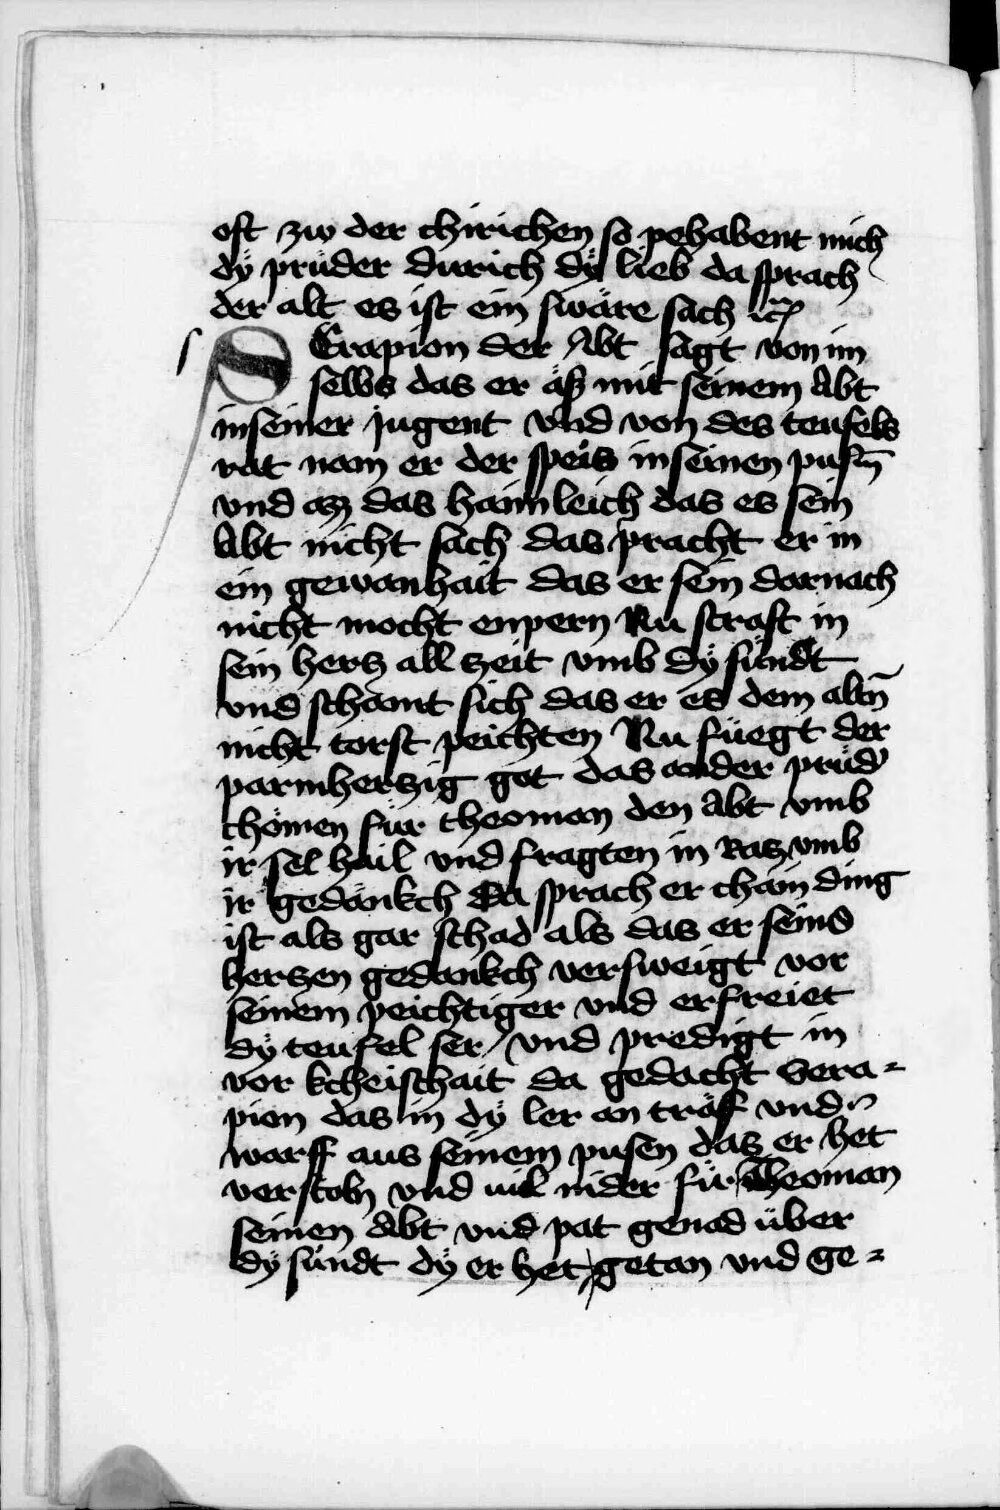 oft zw der chirichen so pehabent mich
dÿ prüder durich dÿ lieb da sprach
der alt es ist ein swäre sach etc̄
SErapion der Abt sagt von im
selbs das er äß mit seinem Abt
in seiner jugent vnd von des teufels
rat nam er der speis in seinen pusm̄
vnd az das haimleich das es sein
Abt nicht sach das pracht er in
ein gewanhait das er sein darnach
nicht mocht enpern Nu straft in
sein hertz all tzeit vmb dÿ sündt
vnd schamt sich das er es dem altn̄
nicht torst peichten Nu füegt der
parmhertzig got das ander prüd'
chömen für theoman den Abt vmb
ir sel hail vnd fragten in Ratz vmb
ir gedänkch Da sprach er chain ding
ist als gar schad als das er seins
hertzen gedankch versweigt vor
seinem peichtiger vnd erfreiet
dÿ teufel ser / vnd predigt in
vor kcheischait da gedacht Sera-
pion das in dÿ ler an träf vnd
warff aus seinem pusen daz er het
verstoln vnd viel nider für theoman
seinen Abt vnd pat genad über
dÿ sündt dÿ er het getan vnd ge-